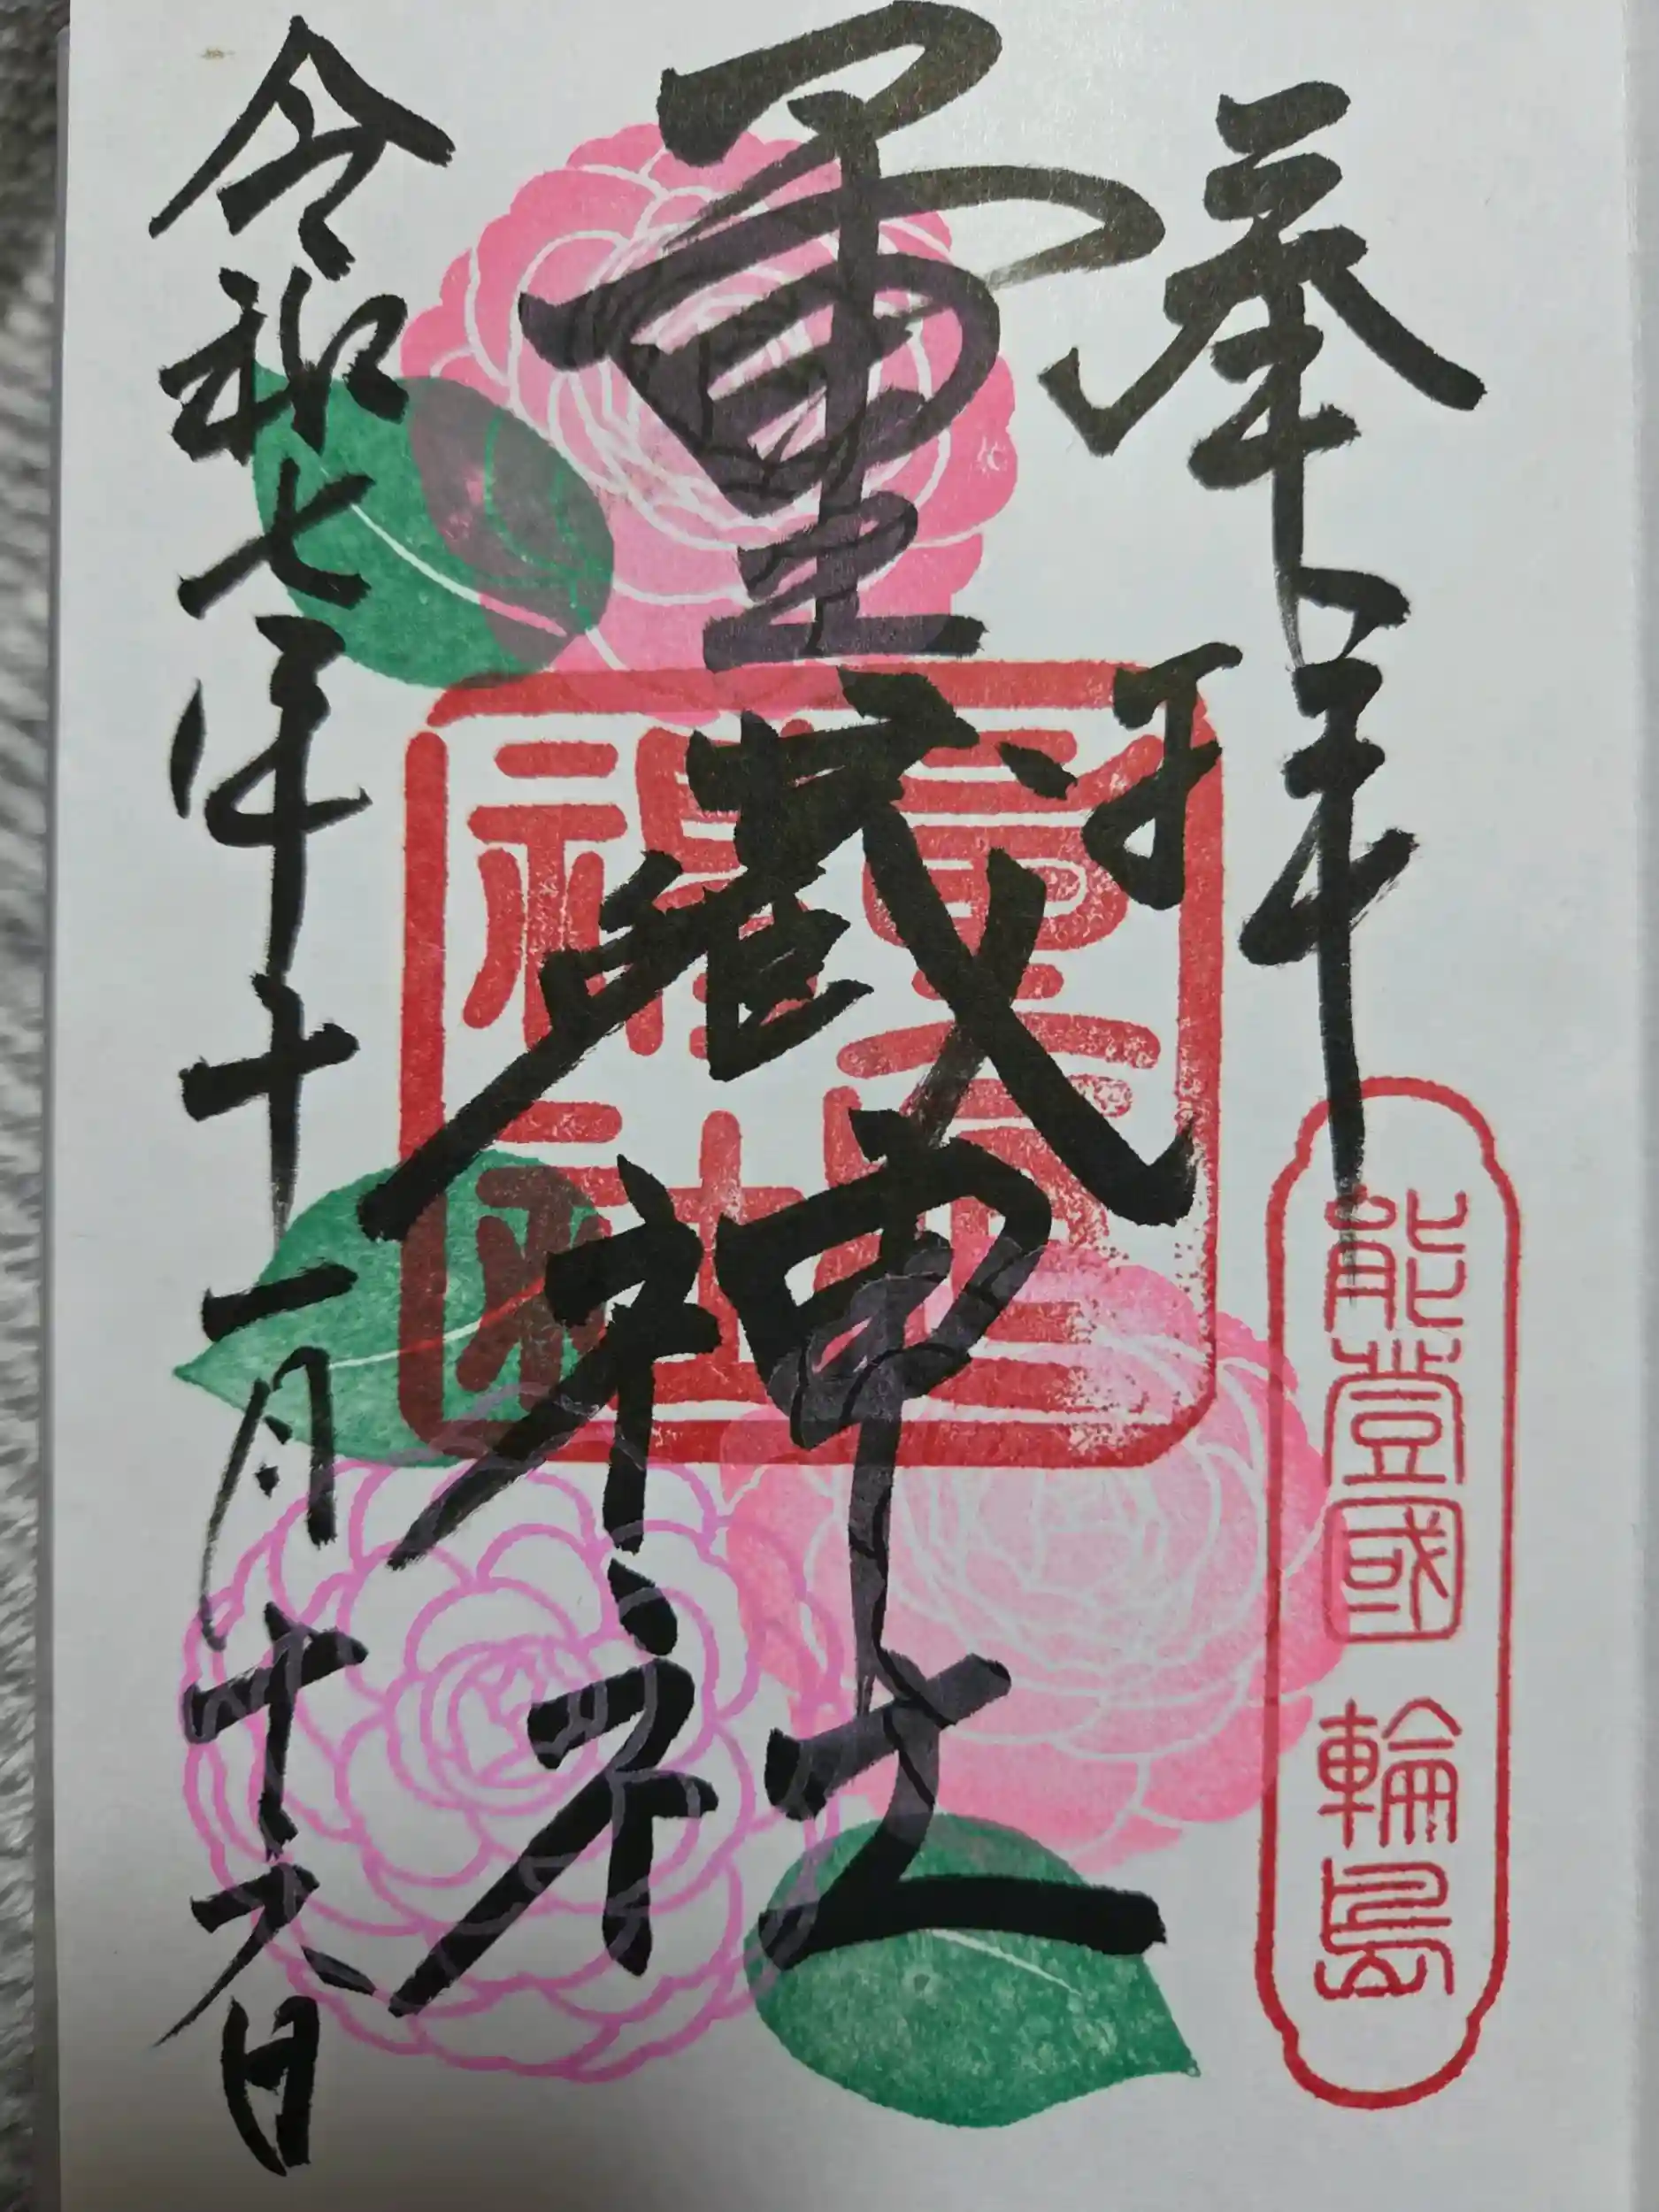 奉拝
能登國 輪島
重蔵神社
重蔵神社
令和七年十一月十六日